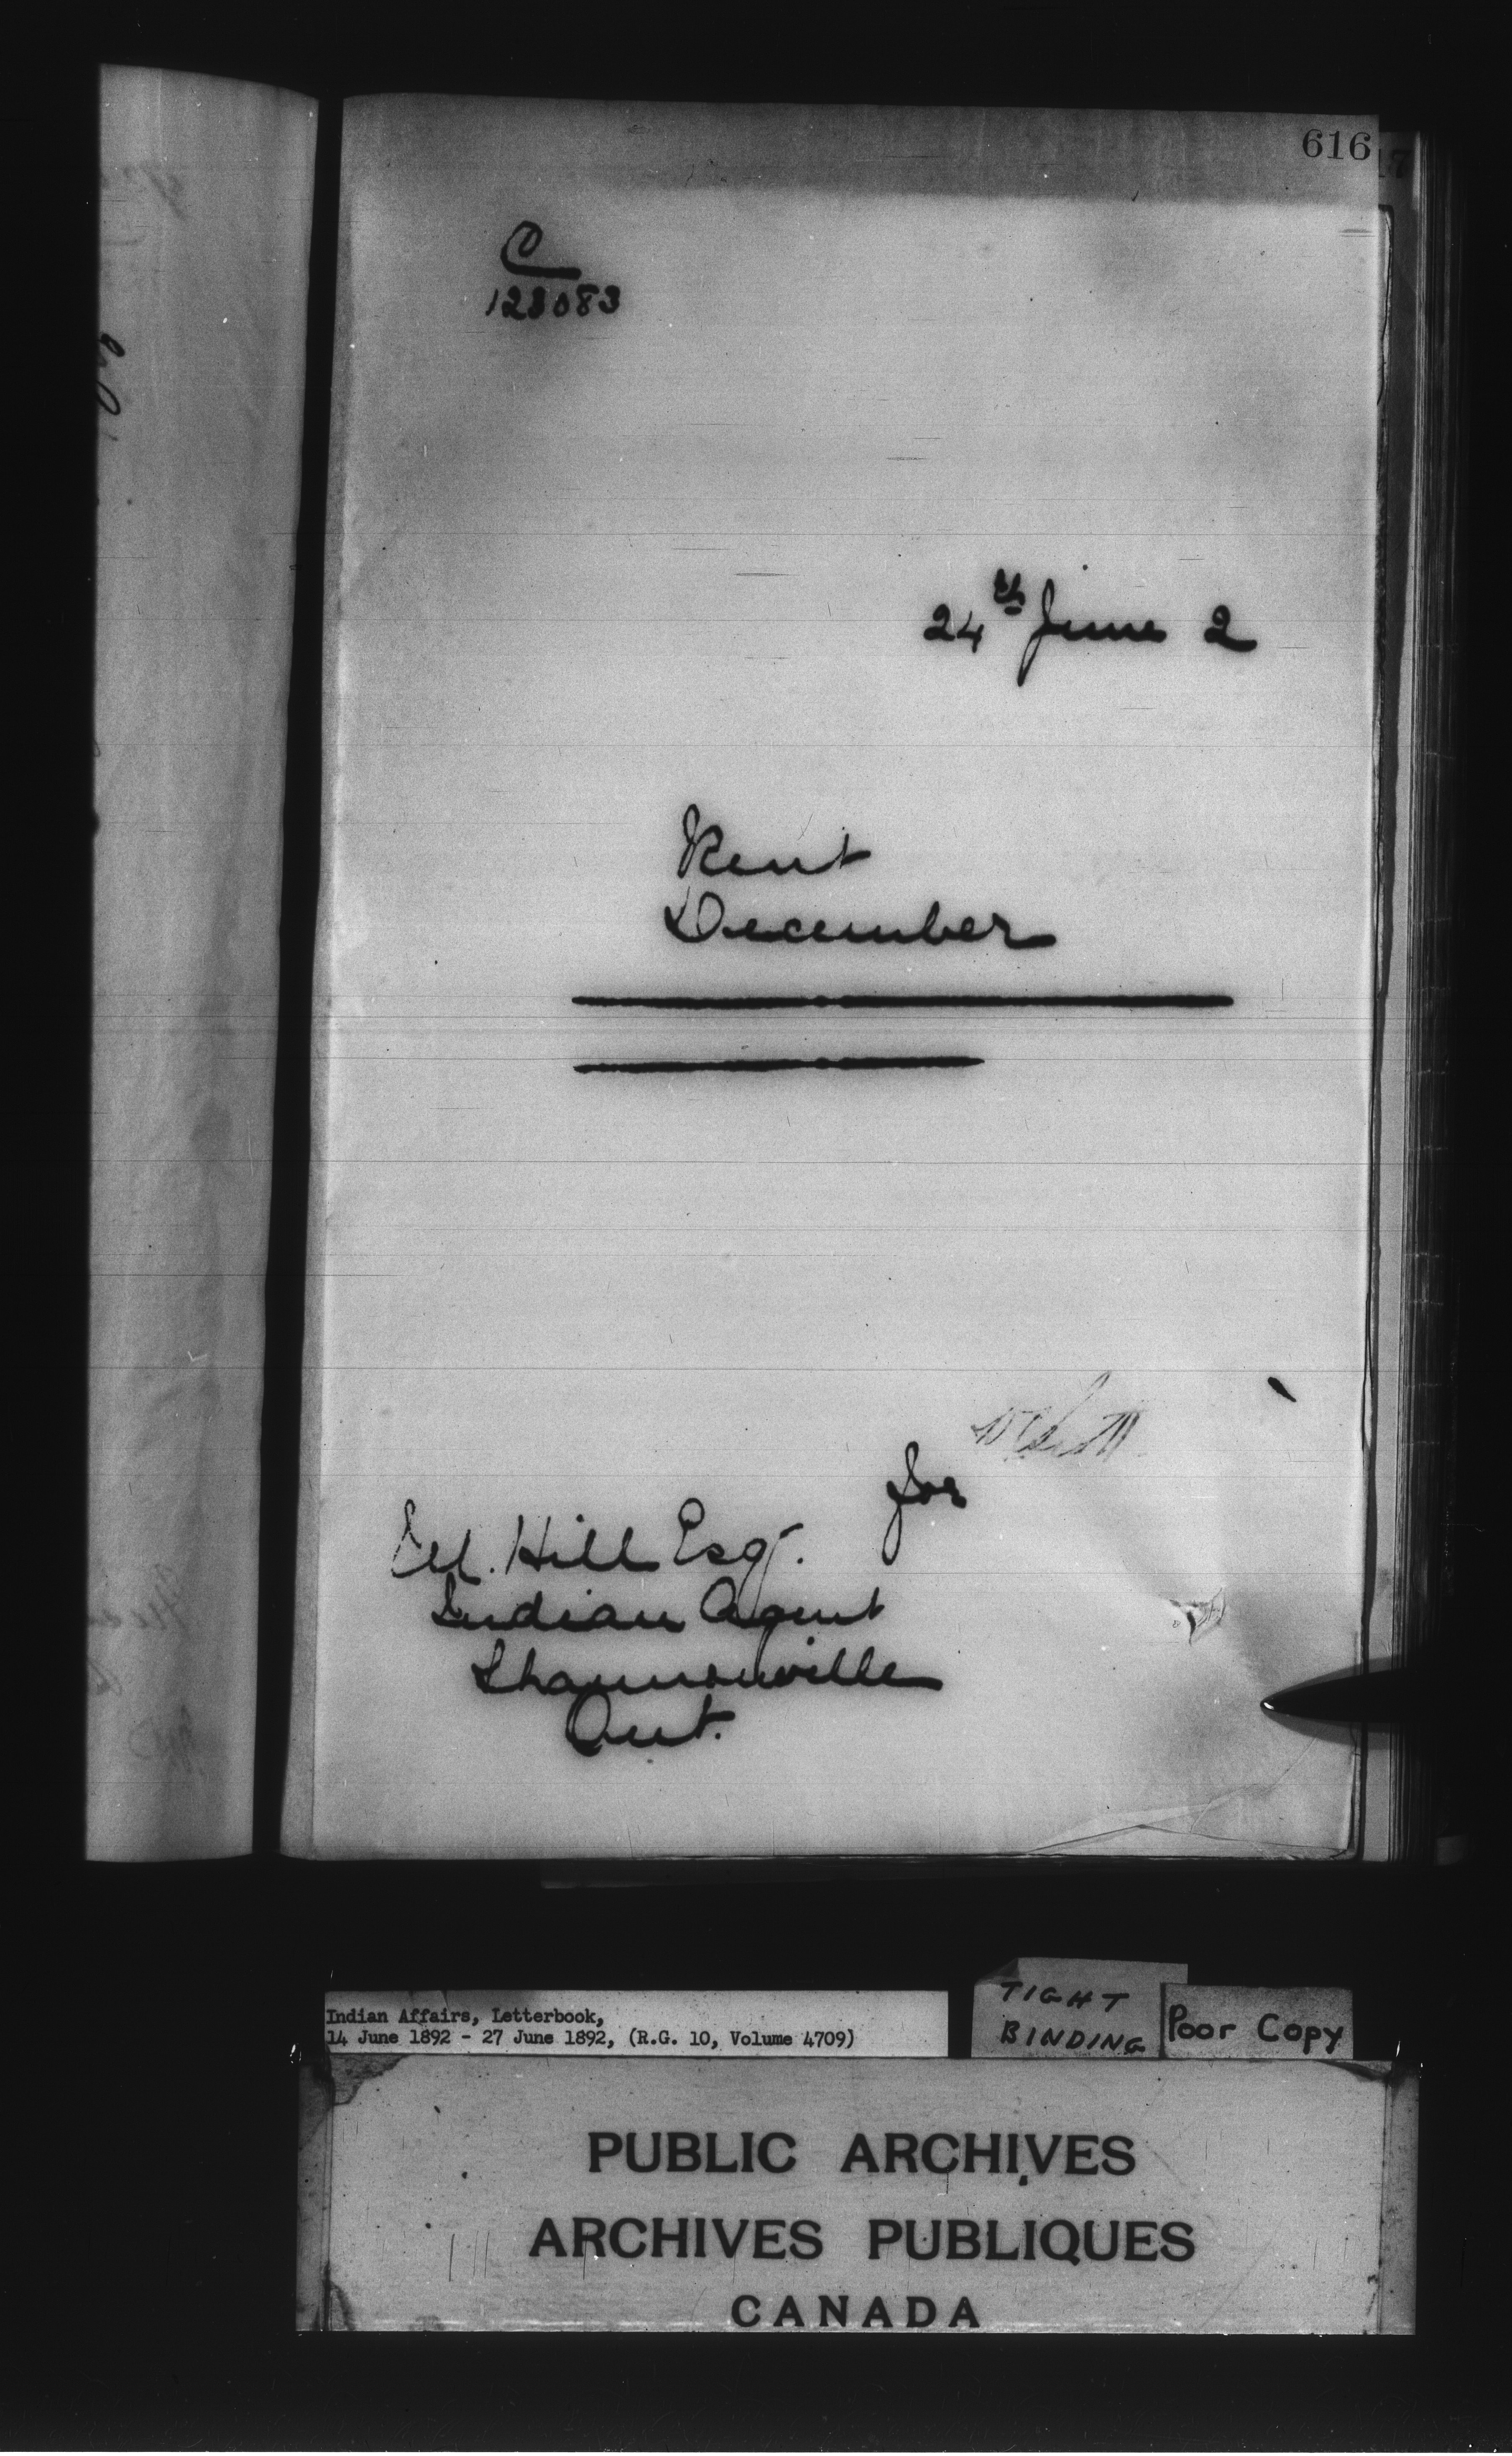 616
C
123083
24th June 2
Rent
December
for
Hill Esq.
Indian Agent
Shannonville
Ont.
Indian Affairs, Letterbook,
14 June 1892 - 27 June 1892, (R.G. 10, Volume 4709)
TIGHT
BINDING
Poor Copy
PUBLIC ARCHIVES
ARCHIVES PUBLIQUES
CANADA